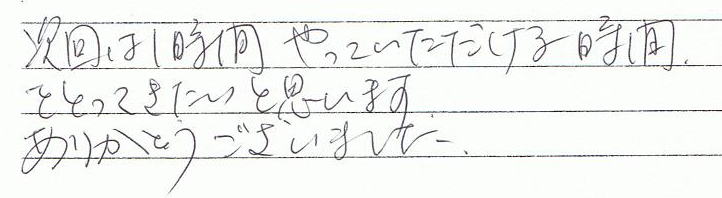 次回は1時間やっていただける時間.
をとってきたいと思います
ありがとうございました.